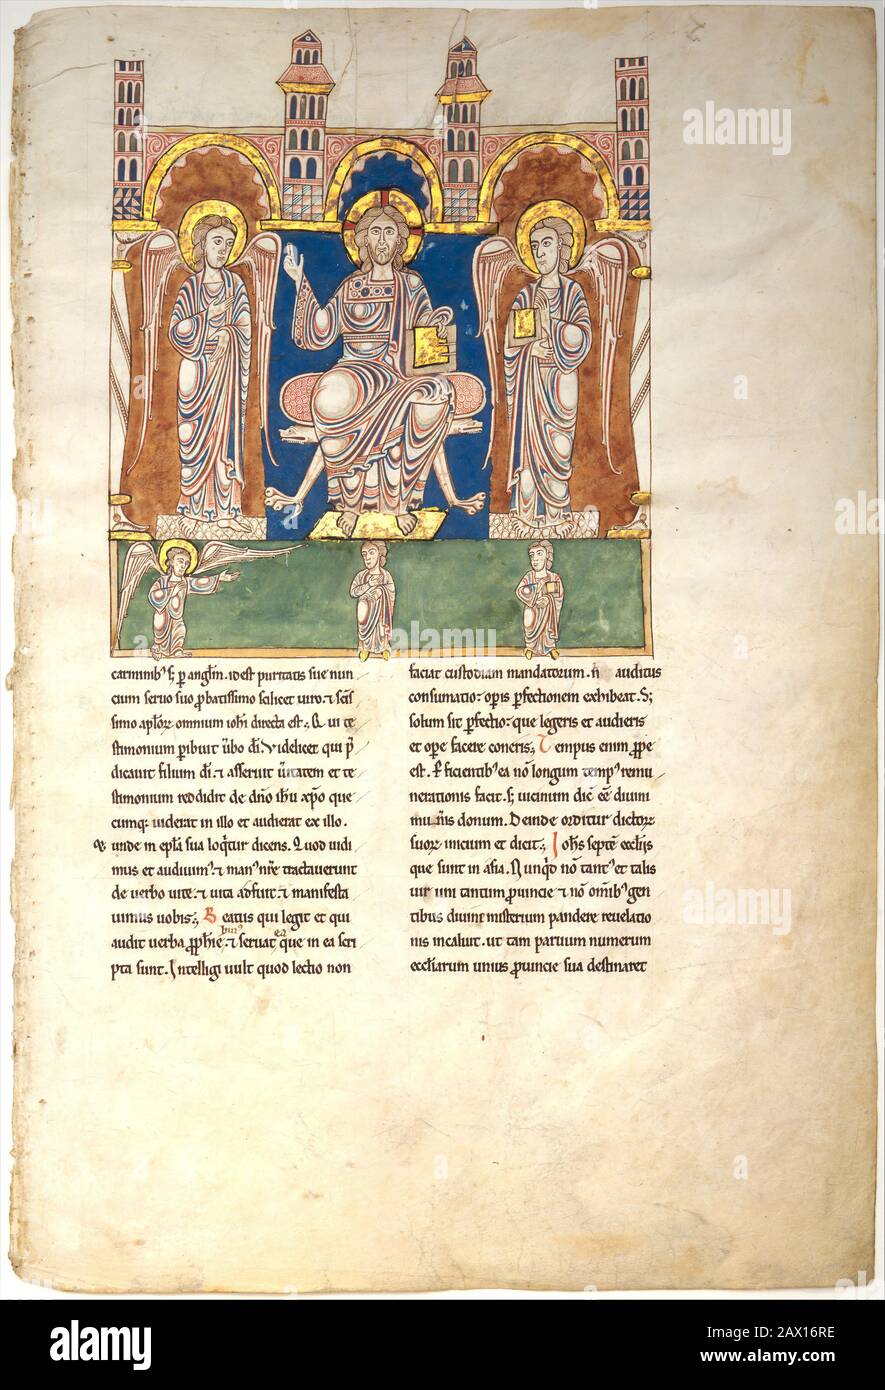 carminib' s; p anglm. id est puritatis sue nun
cium seruo suo pbatissimo scilicet uiro. et scis
simo aplor omnium iohi directa est. Q ui te
stimonium pibuit ubo di. Videlicet qui p
dicauit filium di. et asseruit uitatem et te
stimonium reddidit de dno ihu xpo que
cumq; uiderat in illo et audierat ex illo.
unde in epla sua loqtur dicens. Quod uidi
mus et audiuim' et man' nre tractauerunt
de uerbo uite. et uita adfuit. et manifesta
uimus uobis. B eatus qui legit et qui
audit uerba pphie. et seruat ea que in ea scri
pta sunt. Intelligi uult quod lectio non
faciat custodiam mandatorum. n auditus
consumatio: opis pfectionem exhibeat. S;
solum sit pfectio: que legeris et audieris
et ope facere coneris. T empus enim ppe
est. P ficientib' ea no longum temp' remu
nerationis facit. s; uicinum dic ee diuini
donum. Deinde orditur dictor
suor inicium et dicit. I ohs septe ecclis
que sunt in asia. N unqd no tant' et talis
uir uni tantum puincie et no omib' gen
tibus diuini misterium pandere reuelatio
nis incaluit. ut tam paruum numerum
eccliarum unius puincie sua destinaret
alamy
Image ID: 2AX16RE
www.alamy.com